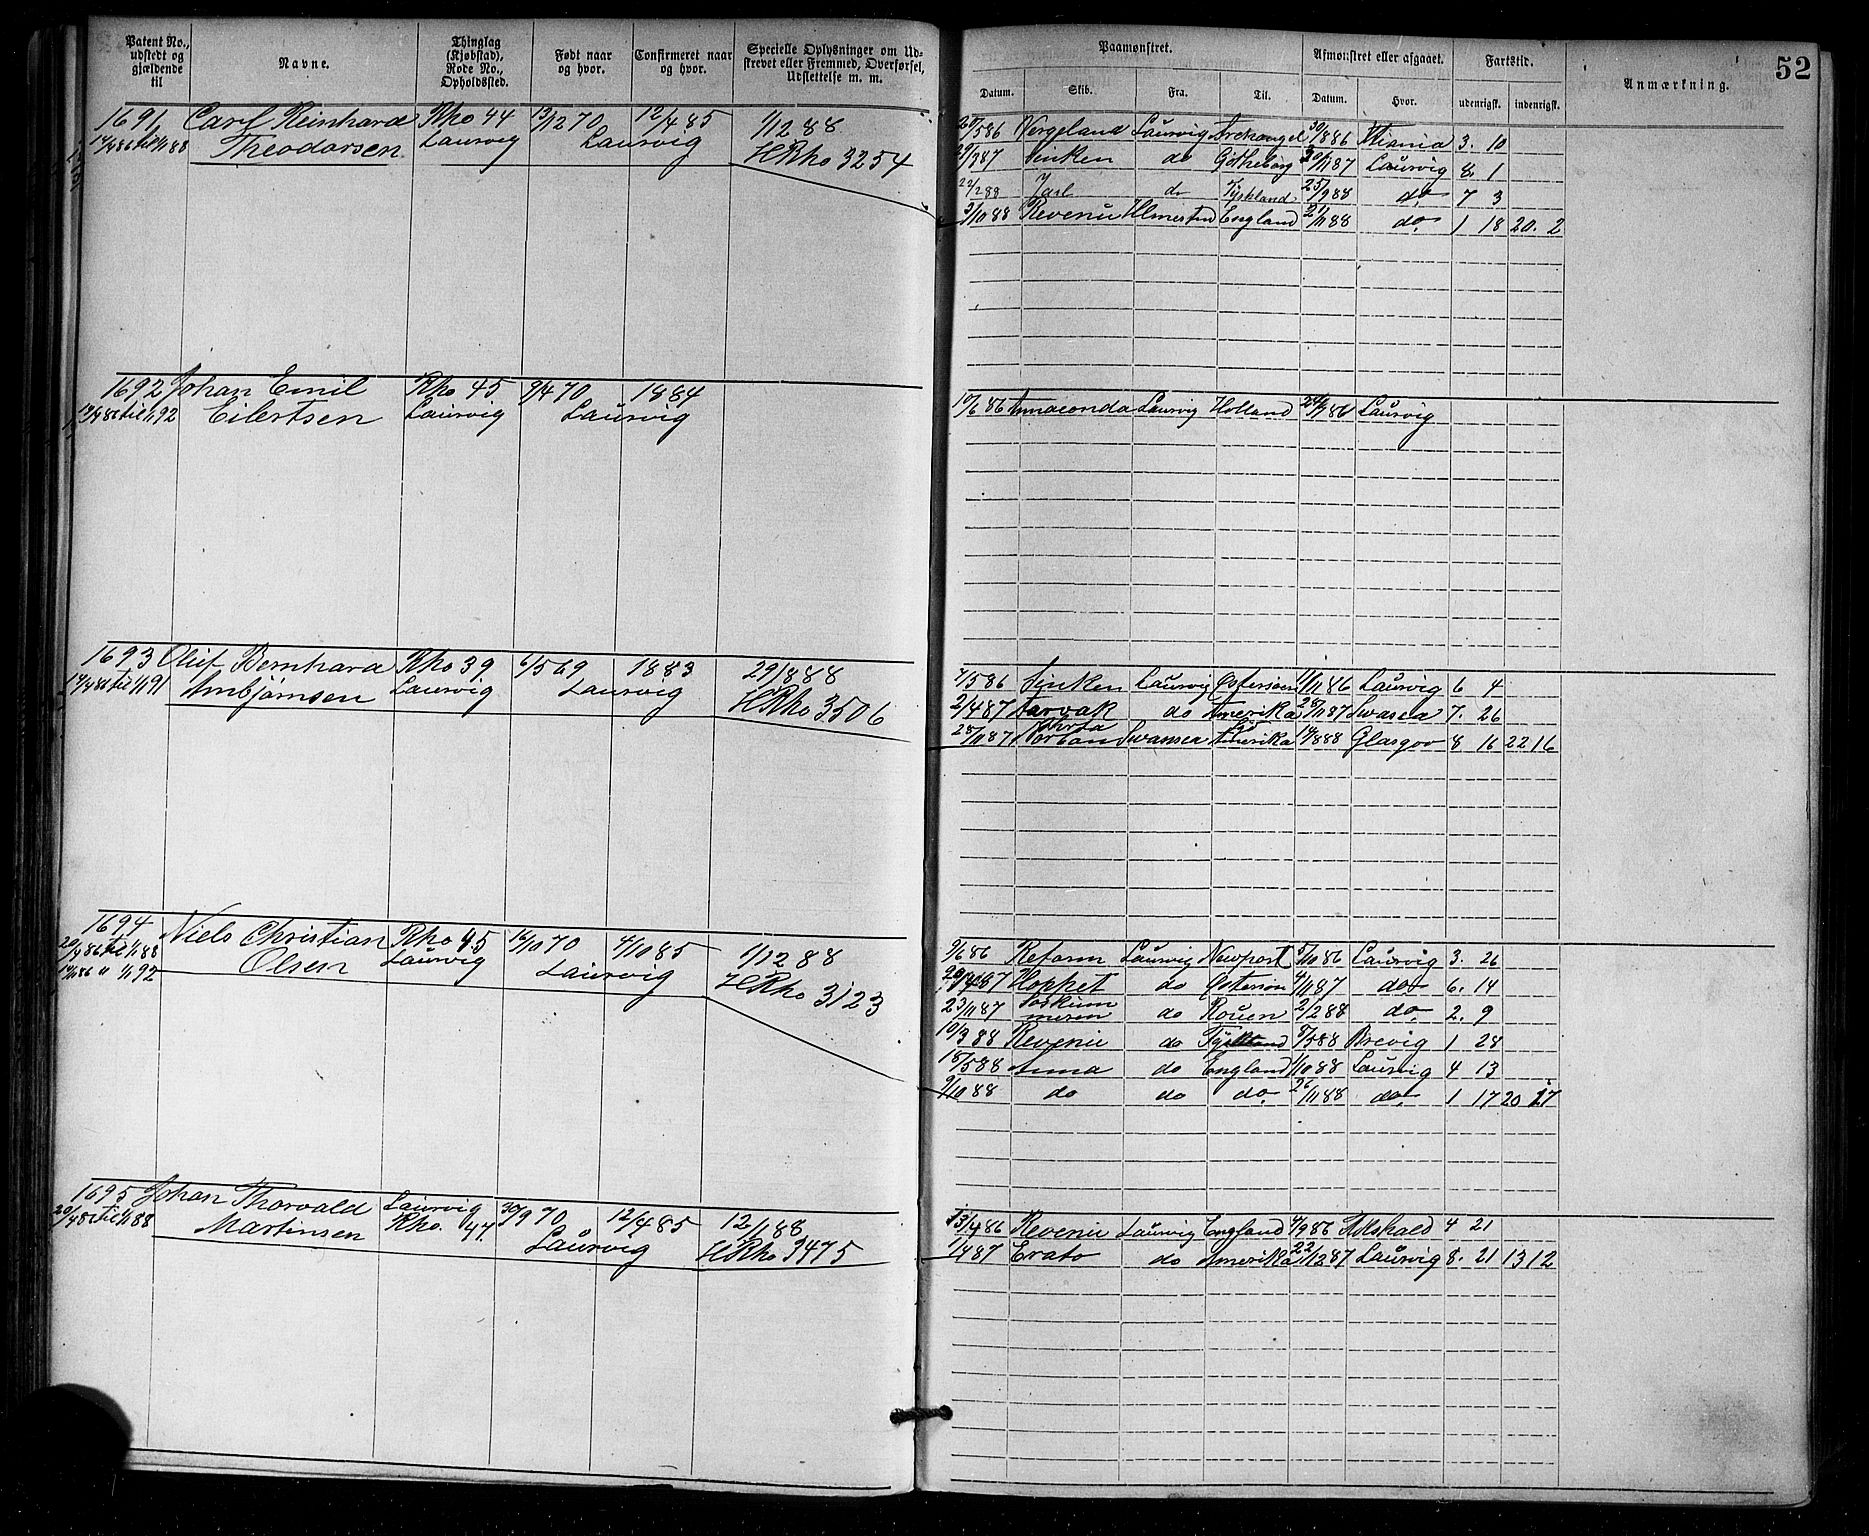 Patent No., udstedt og gjældende til
Navne.
Thinglag (Kjøbstad), Rode No., Opholdssted.
Født naar og hvor.
Confirmeret naar og hvor.
Specielle Oplysninger om Udskrevet eller Fremmed, Overførsel, Udslettelse m. m.
Paamønstret.
Afmønstret eller afgaaet.
Fartstid.
Anmærkning.
52
Datum. Skib. Fra. Til. Datum. Hvor. udenrigsk. indenrigsk.
1691 Carl Reinhard Rho 44 13/12 70 12/4 85 1/12 88
19/4 86 til 1/1 88 Theodorsen Laurvig Laurvig HRho 3254
/5 86 Vergeland Laurvig Archangel 30/8 86 Xiania 3. 10
29/3 87 Sirken do Gøtheborg 30/11 87 Laurvig 8 1
22/2 88 Jarl do Tyskland 25/9 88 do 7 3
3/10 88 Revenu Holmestrand England 21/11 88 do 1 18 20. 2
1692 Johan Emil Rho 45 9/4 70 1884
19/4 86 til 1/1 92 Eilertsen Laurvig Laurvig
10/6 86 Annaconda Laurvig Holland 24/7 86 Laurvig
1693 Oluf Bernhard Rho 39 6/5 69 1883 29/8 88
19/4 86 til 1/1 91 Arnbjørnsen Laurvig Laurvig HRho 3506
7/5 86 Sirken Laurvig Østersøen 11/11 86 Laurvig 6 4
2/4 87 Farvak do Amerika 28/11 87 Swansea 7. 26
28/11 87 Swansea Amerika 14/8 88 Glasgow 8 16 22 16
1694 Niels Christian Rho 45 16/10 70 4/10 85 1/12 88
20/4 86 til 1/1 88 Olsen Laurvig Laurvig HRho 3123
19/1 86 " 1/1 92
9/6 86 Reform Laurvig Newport 5/10 86 Laurvig 3. 26
20/4 87 Hoppet do Østersøen 4/11 87 do 6. 14
23/11 87 do Rouen 2/2 88 do 2. 9
10/3 88 Revenu do Tyskland 8/5 88 Brevig 1 28
18/5 88 Anna do England 1/10 88 Laurvig 4 13
9/10 88 do do do. 26/11 88 do. 1 17 20 17
1695 Johan Thorvald Laurvig 30/9 70 12/4 85 12/1 88
20/4 86 til 1/1 88 Martinsen Rho. 47 Laurvig HRho 3475
13/4 86 Revenu Laurvig England 4/9 86 4 21
1/4 87 Erato do Amerika 22/12 87 Laurvig 8. 21 13 12